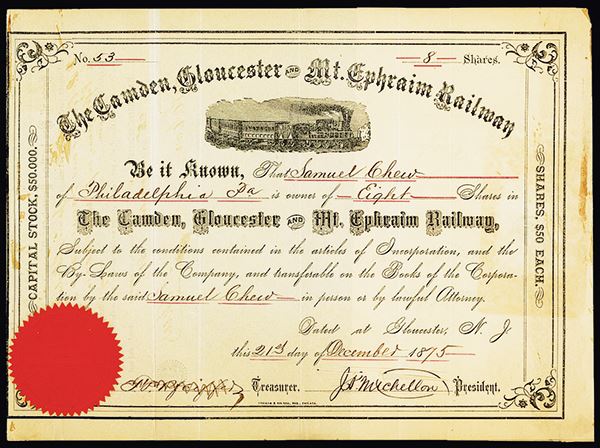 No. 53 8 Shares.
The Camden, Gloucester AND Mt. Ephraim Railway
Be it Known, That Samuel Chew
of Philadelphia Pa is owner of Eight Shares in
The Camden, Gloucester AND Mt. Ephraim Railway,
Subject to the conditions contained in the articles of Incorporation, and the
By-Laws of the Company, and transferable on the Books of the Corpora-
tion by the said Samuel Chew in person or by lawful Attorney.
Dated at Gloucester, N. J.
this 21st day of December 1875
Treasurer. President.
CAPITAL STOCK, $50,000.
SHARES, $50 EACH.